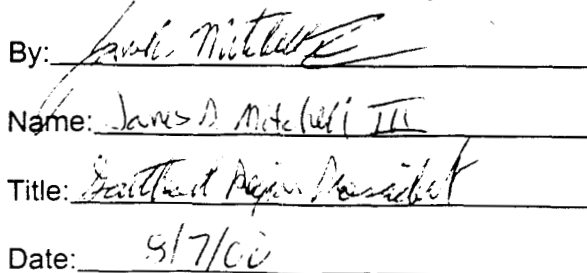 By: James Mitchell III
Name: James D Mitchell III
Title: Southeast Region President
Date: 8/7/00